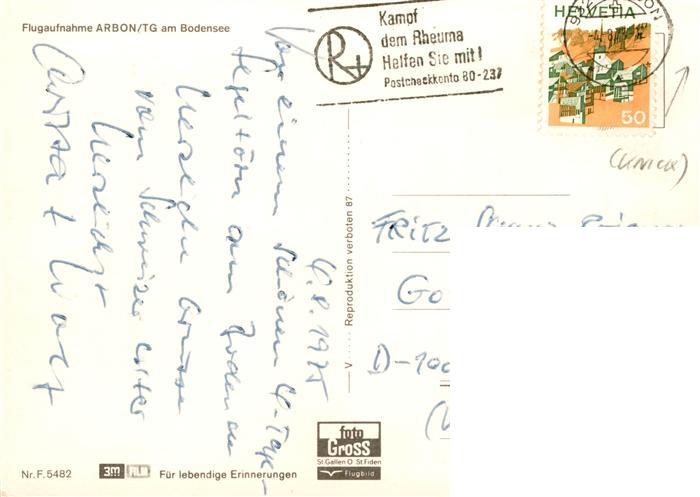 Flugaufnahme ARBON/TG am Bodensee
Kampf
dem Rheuma
Helfen Sie mit!
Postcheckkonto 80-237
R+
HELVETIA
50
4.8.1975
Von einem schönen 4-Tage-
Segeltörn am Bodensee
herzliche Grüsse
vom Schweizer
Herzlichst
FRITZ
Go
D-100
V
Reproduktion verboten 87
foto
GROSS
St.Gallen O St.Fiden
Flugbild
Nr. F. 5482
3M
Für lebendige Erinnerungen